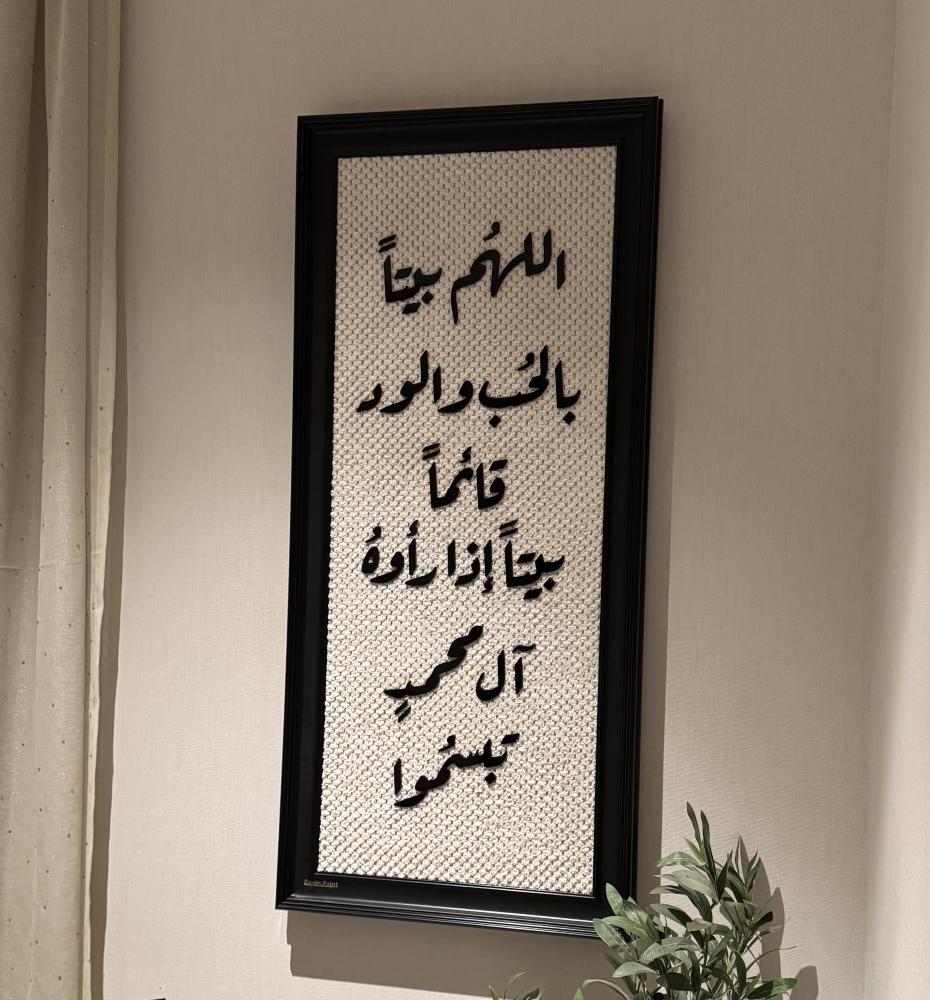 اللهُم بيتاً
بالحُب والود
قائماً
بيتاً إذا رأوهُ
آل محمدٍ
تبسُموا
Deein Point